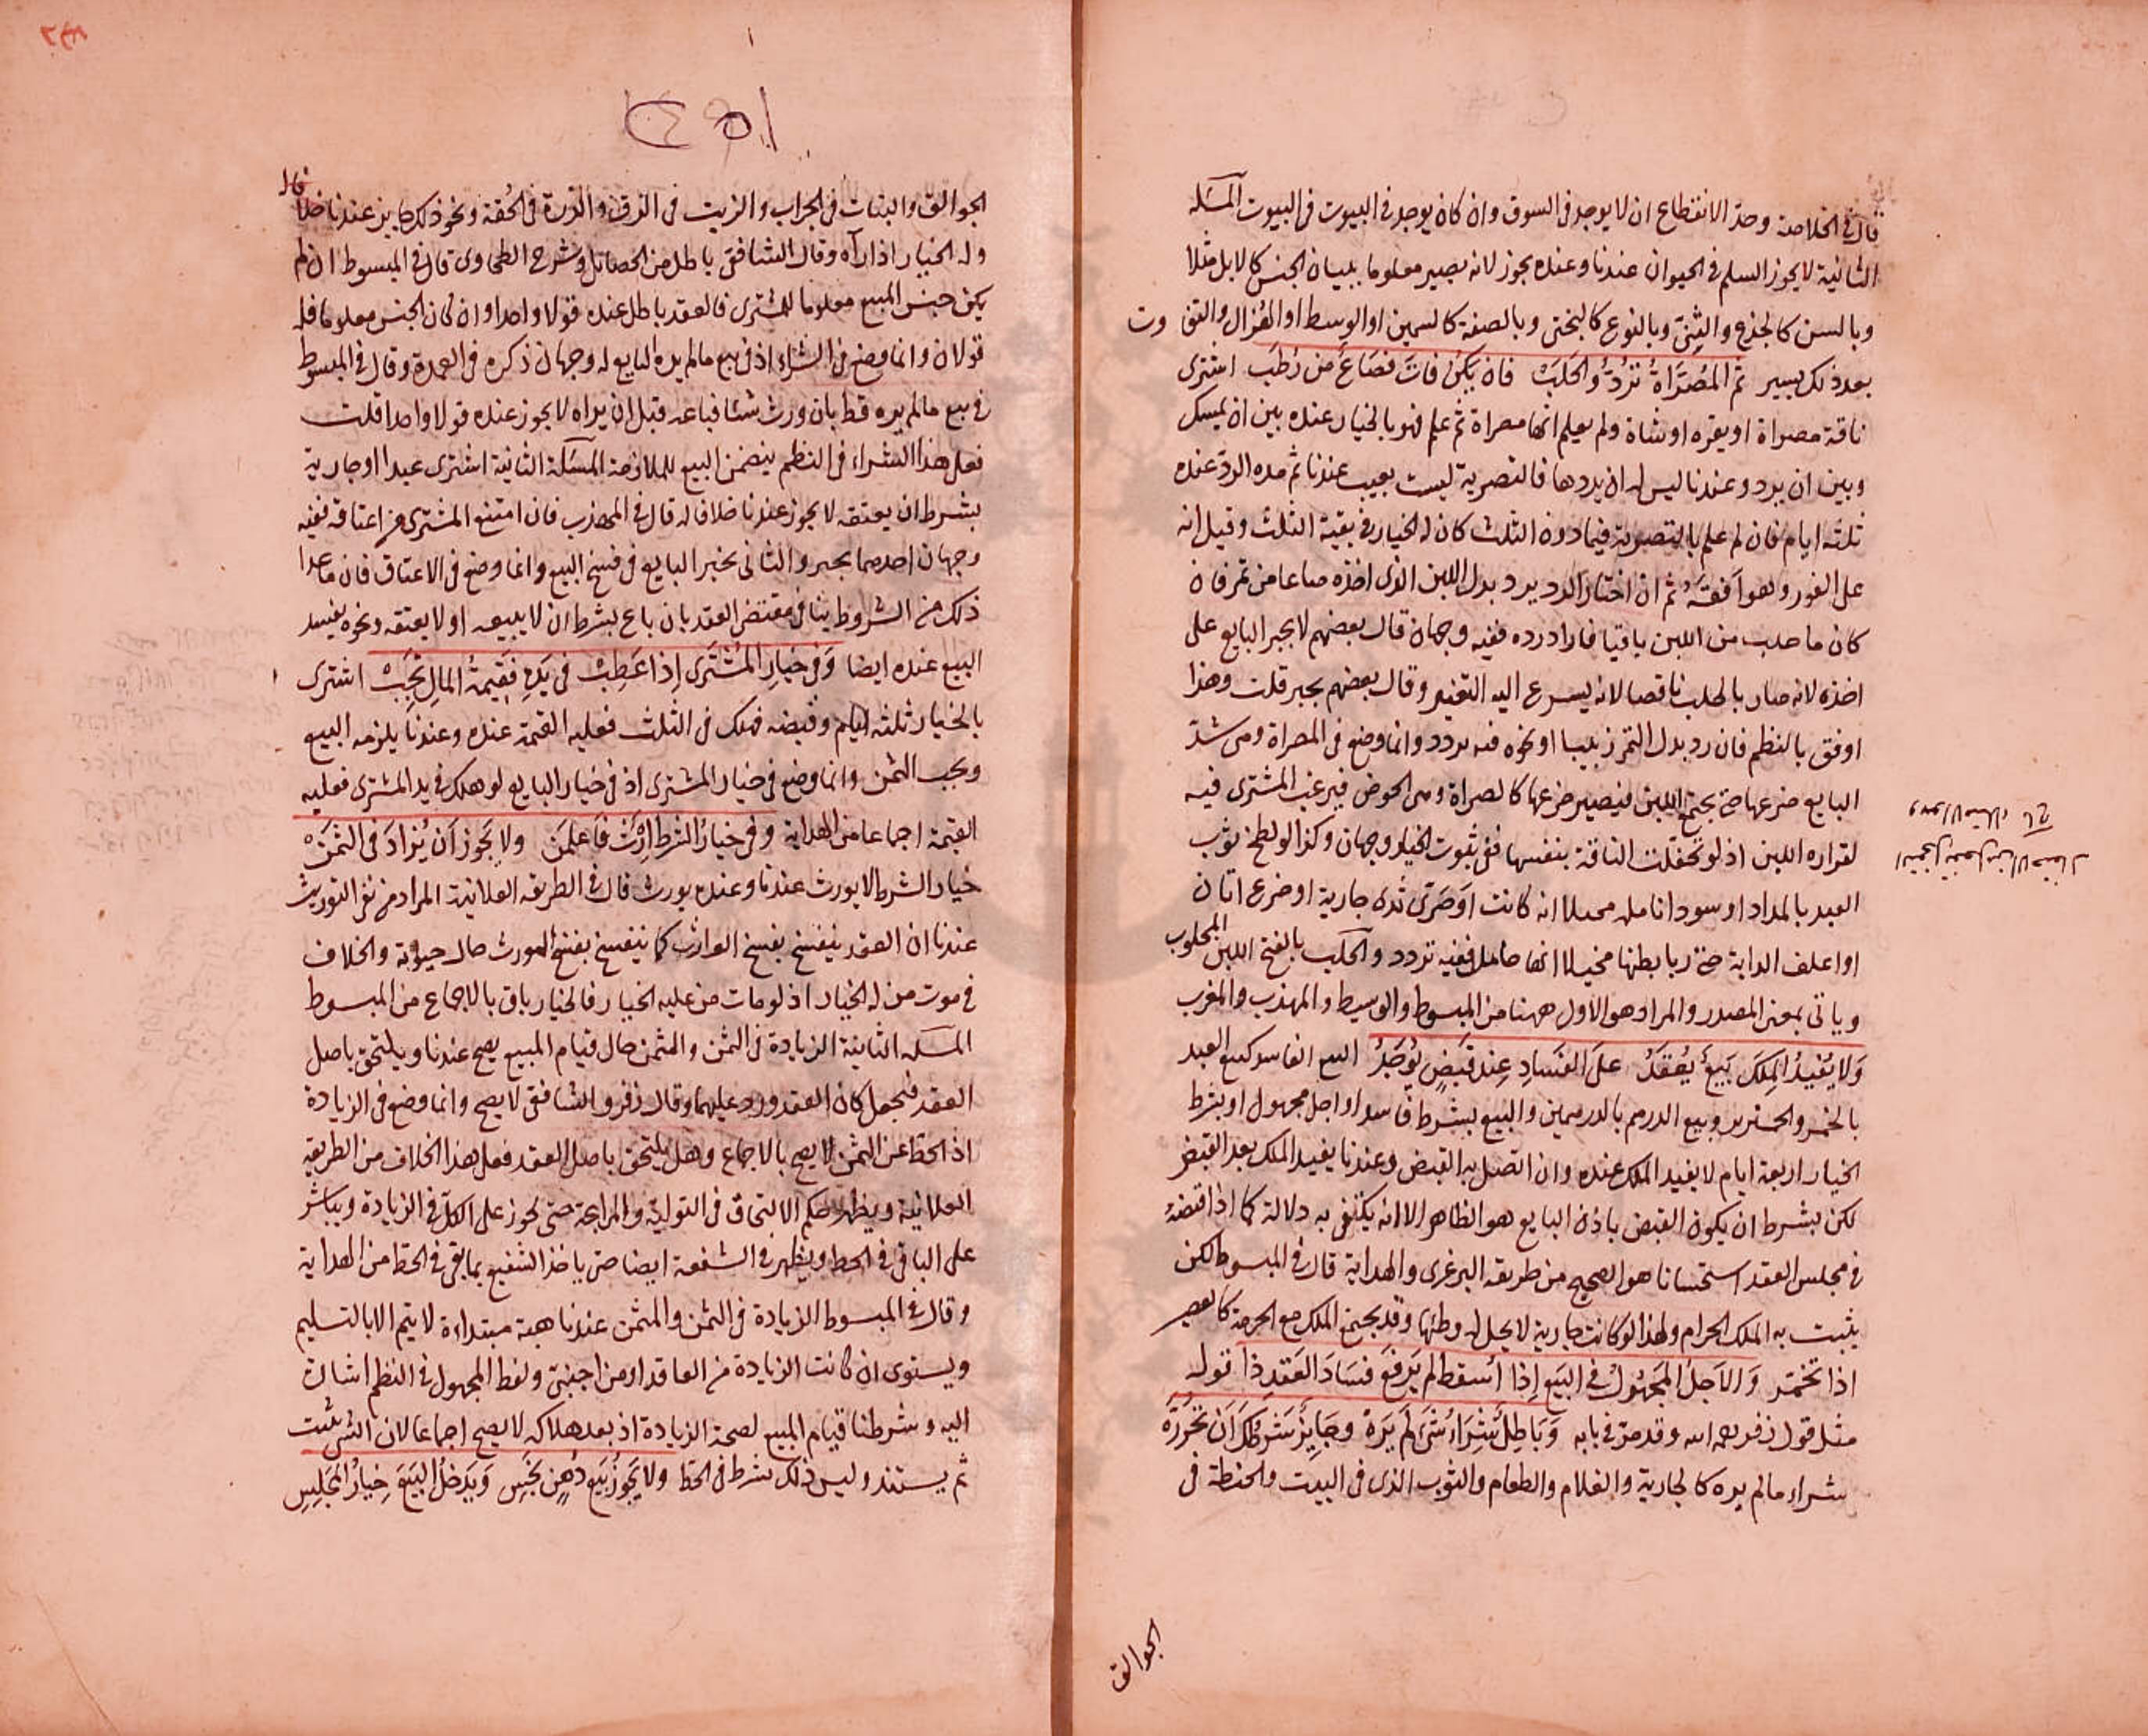 قال في الخلاصة وحد الانقطاع ان لا يوجد في السوق وان كان يوجد في البيوت في البيوت المسئله
الثانية لا يجوز السلم في الحيوان عندنا وعنده يجوز لانه يصير معلوما ببيان الجنس كالابل مثلا
وبالسن كالجذع والثني وبالنوع كالبختى وبالصفة كالسمين او الوسط او الهزال والتفاوت
بعد ذلك يسير ثم المُصَرَّاةُ تُرَدُّ والحَلَبْ فان يَكُنْ فاتَ فصَاعٌ من رُطَبْ اشترى
ناقة مصراة او بقره او شاة ولم يعلم انها مصراة ثم علم فهو بالخيار عنده بين ان يمسك
وبين ان يرد وعندنا ليس له ان يردها فالتصرية ليست بعيب عندنا ثم مده الرد عنده
ثلثه ايام فان لم علم بالتصرية فيما دون الثلث كان له الخيار في بقية الثلث وقيل انه
على الفور وهو افقَهُ ثم ان اختار الرد يرد بدل اللبن الذى اخذه صاعا من تمر فان
كان ما حلب من اللبن باقيا فاراد رده ففيه وجهان قال بعضهم لا يجبر البايع على
اخذه لانه صار بالحلب ناقصا لانه يسرع اليه التغير وقال بعضهم يجبر قلت وهذا
اوفق بالنظم فان رد بدل التمر زبيبا او نحوه ففيه تردد وانما وضع في المصراة وهى شدّ
البايع ضرعها حتى يجتمع اللبن فيصير ضرعها كالصراة وهى الحوض فيرغب المشترى فيه
لغزاره اللبن اذ لو تحفلت الناقة بنفسها ففي ثبوت الخيار وجهان وكذا لو لطخ ثوب
العبد بالمداد او سود انامله مخيلا انه كاتب او صَرّى ثدى جارية او ضرع اتان
او اعلف الدابة حتى ربا بطنها مخيلا انها حامل ففيه تردد والحلب بالفتح اللبن المحلوب
وياتى بمعنى المصدر والمراد هو الاول ههنا من المبسوط والوسيط والمهذب والمغرب
وَلا يُفيدُ المِلكَ بَيعٌ يُعقَدُ علَى الفَسَادِ عِندَ قَبضٍ يُوجَدُ البيع الفاسد كبيع العبد
بالخمر والخنزير وبيع الدرهم بالدرهمين والبيع بشرط فاسد او اجل مجهول او بشرط
الخيار اربعة ايام لا يفيد الملك عنده وان اتصل به القبض وعندنا يفيد الملك بعد القبض
لكن بشرط ان يكون القبض باذن البايع هو الظاهر الا انه يكتفى به دلالة كما اذا قبضه
في مجلس العقد استحسانا هو الصحيح من طريقه البرغرى والهداية قال في المبسوط لكن
يثبت به الملك الحرام ولهذا لو كانت جارية لا يحل له وطئها وقد يجتمع الملك مع الحرمة كالعصير
اذا تخمّر وَالاَجَلُ المَجهُولُ في البَيعِ اِذا اُسقط لم يَرفَع فسَادَ العَقدِ ذا قوله
مثل قول زفر رحمه الله وقد مرّ في بابه وَبَاطِلٌ شِرَاءُ شَىءٍ لَم يَرَهْ وجَايِزٌ شَرطُكَ اَن تُحَرِّرَهْ
شراء مالم يره كالجارية والغلام والطعام والثوب الذى فى البيت والحنطة في
الجوالق
الجوالق والبنات في الجراب والزيت في الزق والدرة في الحقة ونحو ذلك جايز عندنا خلافا له
وله الخيار اذا رآه وقال الشافعي باطل من الحصائل وشرح الطحاوى قال في المبسوط ان لم
يكن جنس المبيع معلوما للمشترى فالعقد باطل عنده قولا واحدا وان كان الجنس معلوما فله
قولان وانما وضع في الشراء اذ في بيع مالم يره البايع له وجهان ذكره في العمدة وقال في المبسوط
في بيع مالم يره قط بان ورث شئا فباعه قبل ان يراه لا يجوز عنده قولا واحدا قلت
فعلى هذا الشراء في النظم يتضمن البيع للملازمة المسئلة الثانية اشترى عبدا او جارية
بشرط ان يعتقه لا يجوز عندنا خلافا له قال في المهذب فان امتنع المشترى من اعتاقه ففيه
وجهان احدهما يجبر والثانى يخير البايع في فسخ البيع وانما وضع في الاعتاق فان ما عدا
ذلك من الشروط ينافى مقتضى العقد بان باع بشرط ان لا يبيعه او لا يعتقه ونحوه يفسد
البيع عنده ايضا وَفي خيارِ المُشتَرى اِذا عَطِبْ في يَدِهِ فَقيمةُ المالِ تَجِبْ اشترى
بالخيار ثلثه ايام وقبضه فهلك فى الثلث فعليه القيمة عنده وعندنا يلزمه البيع
ويجب الثمن وانما وضع في خيار المشترى اذ في خيار البايع لو هلك في يد المشترى فعليه
القيمة اجماعا من الهداية وفي خيارُ الشرط اِرْثٌ فَاعلَمَن ولا يَجُوز اَن يُزادَ في الثَمَنْ
خيار الشرط لا يورث عندنا وعنده يورث قال في الطريقه العلائية المراد من نفي التوريث
عندنا ان العقد ينفسخ بفسخ الوارث كما ينفسخ بفسخ المورث حال حيوته والخلاف
في موت من له الخيار اذ لو مات من عليه الخيار فالخيار باق بالاجماع من المبسوط
المسئله الثانية الزيادة في الثمن والمثمن حال قيام المبيع يصح عندنا ويلتحق باصل
العقد فيجعل كان العقد ورد عليهما وقال زفر والشافعي لا يصح وانما وضع في الزيادة
اذ الحط عن الثمن يصح بالاجماع وهل يلتحق باصل العقد فعلى هذا الخلاف من الطريقه
العلائية ويظهر حكم الالتحاق في التولية والمرابحة حتى يجوز على الكل في الزيادة ويباشر
على الباقى في الحط ويظهر في الشفعة ايضا حتى ياخذ الشفيع بما بقى في الحط من الهداية
وقال في المبسوط الزيادة في الثمن والمثمن عندنا هبة مبتداءة لا يتم الا بالتسليم
ويستوى ان كانت الزيادة من العاقد او من اجنبيّ ولفظ المجهول في النظم اشارة
اليه وشرطنا قيام المبيع لصحة الزيادة اذ بعد هلاكه لا يصح اجماعا لان الشى يثبت
ثم يستند وليس ذلك بشرط في الحط ولا يَجُوزُ بَيعُ دُهنٍ نَجِسِ وَيَدخلُ البَيعَ خِيارُ المَجلِسِ